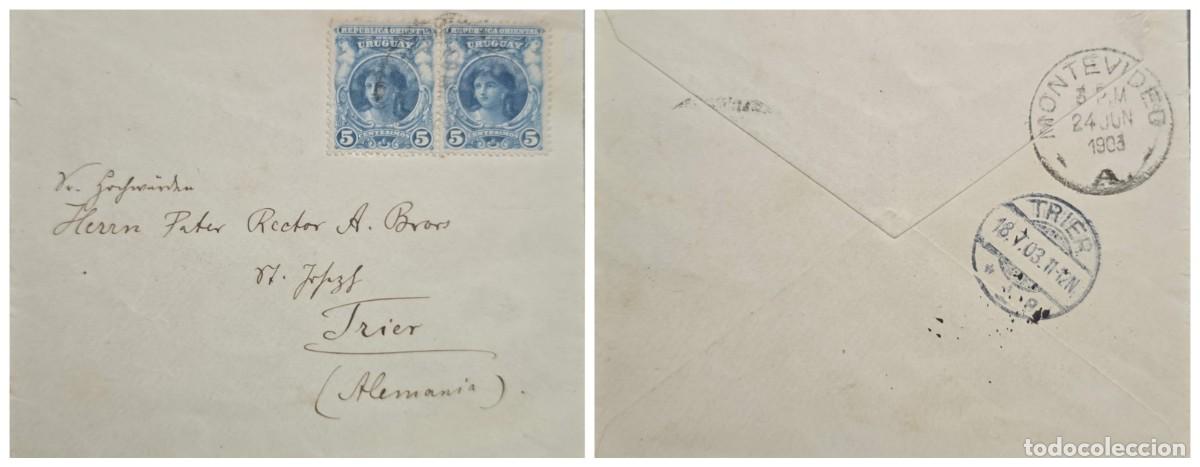 REPUBLICA ORIENTAL REPUBLICA ORIENTAL
URUGUAY URUGUAY
5 CENTESIMOS 5 5 CENTESIMOS 5
Sr. Hochwürden
Herrn Pater Rector A. Brors
St. Joseph
Trier
(Alemania).
MONTEVIDEO
3 P.M
24 JUN
1903
A
TRIER
18.7.03.11-12N.
* 1 e
todocoleccion